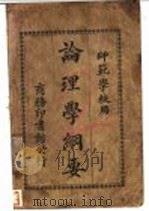 師範學校用
論理學綱要
商務印書館發行